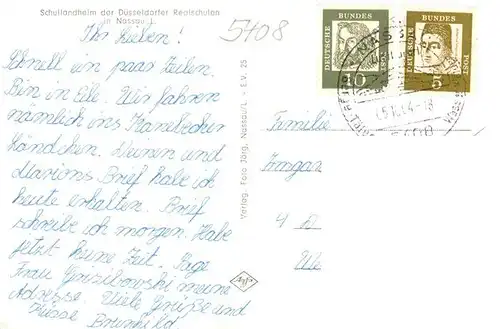 Schullandheim der Düsseldorfer Realschulen
in Nassau/L.
5408
Ihr Lieben!
Schnell ein paar Zeilen.
Bin in Eile. Wir fahren
nämlich ins Kannebäcker
Ländchen. Deinen und
Marions Brief habe ich
heute erhalten. Brief
schreibe ich morgen. Habe
jetzt keine Zeit. Sage
Frau meine
Adresse. Viele Grüße und
Küsse Brunhild
Verlag: Foto Jörg, Nassau/L. - E.V. 25
Agfa
DEUTSCHE BUNDESPOST
10
DEUTSCHE BUNDESPOST
5
Familie
4 D